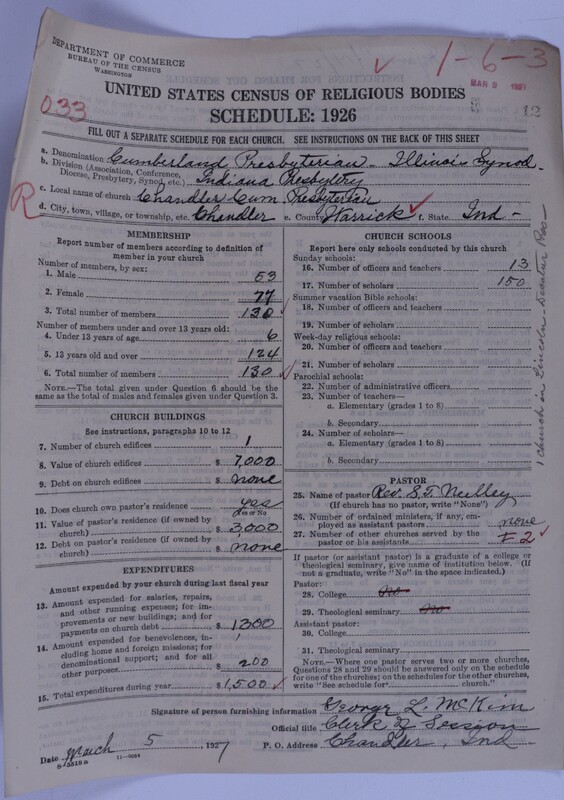 DEPARTMENT OF COMMERCE
BUREAU OF THE CENSUS
WASHINGTON
1-6-3
MAR 9
UNITED STATES CENSUS OF RELIGIOUS BODIES
033
SCHEDULE: 1926
12
FILL OUT A SEPARATE SCHEDULE FOR EACH CHURCH. SEE INSTRUCTIONS ON THE BACK OF THIS SHEET
a. Denomination Cumberland Presbyterian - Illinois Synod.
b. Division (Association, Conference, Diocese, Presbytery, Synod, etc.) Indiana Presbytery
c. Local name of church Chandler Cum Presbyterian
R
d. City, town, village, or township, etc. Chandler e. County Warrick f. State Ind -
MEMBERSHIP
Report number of members according to definition of
member in your church
Number of members, by sex:
1. Male 53
2. Female 77
3. Total number of members 130
Number of members under and over 13 years old:
4. Under 13 years of age 6
5. 13 years old and over 124
6. Total number of members 130
NOTE.—The total given under Question 6 should be
same as the total of males and females given under Question 3.
CHURCH BUILDINGS
See instructions, paragraphs 10 to 12
7. Number of church edifices 1
8. Value of church edifices $ 7,000
9. Debt on church edifices $ none
10. Does church own pastor's residence? yes
Yes or No
11. Value of pastor's residence (if owned by
church) $ 3,000
12. Debt on pastor's residence (if owned by
church) $ none
EXPENDITURES
Amount expended by your church during last fiscal year
13. Amount expended for salaries, repairs,
and other running expenses; for im-
provements or new buildings; and for
payments on church debt $ 1300
14. Amount expended for benevolences, in-
cluding home and foreign missions; for
denominational support; and for all
other purposes $ 200
15. Total expenditures during year $ 1,500
CHURCH SCHOOLS
Report here only schools conducted by this church
Sunday schools:
16. Number of officers and teachers 13
17. Number of scholars 150
Summer vacation Bible schools:
18. Number of officers and teachers
19. Number of scholars
Week-day religious schools:
20. Number of officers and teachers
21. Number of scholars
Parochial schools:
22. Number of administrative officers
23. Number of teachers—
a. Elementary (grades 1 to 8)
b. Secondary
24. Number of scholars—
a. Elementary (grades 1 to 8)
b. Secondary
PASTOR
25. Name of pastor Rev. S. F. Nulley
(If church has no pastor, write "None")
26. Number of ordained ministers, if any, em-
ployed as assistant pastors none
27. Number of other churches served by the
pastor or his assistants 2
If pastor (or assistant pastor) is a graduate of a college or
theological seminary, give name of institution below. (If
not a graduate, write "No" in the space indicated.)
Pastor:
28. College No
29. Theological seminary No
Assistant pastor:
30. College
31. Theological seminary
NOTE.—Where one pastor serves two or more churches,
Questions 28 and 29 should be answered only on the schedule
for one of the churches; on the schedules for the other churches,
write "See schedule for church."
1 church in Lincoln-Decatur Pres-
Signature of person furnishing information George L. McKim
Official title Clerk of Session
Date March 5, 1927
P. O. Address Chandler, Ind -
8-5518a
11-9064